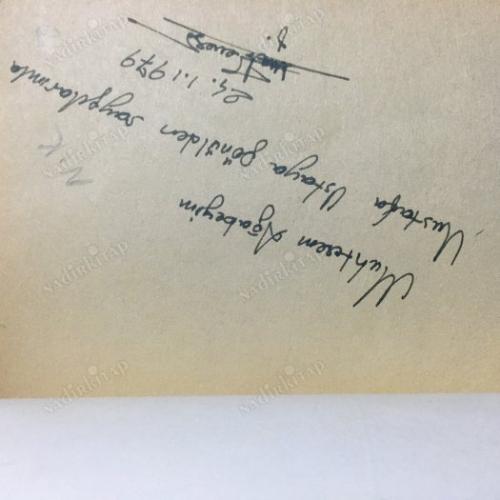 Muhterem Ağabeyim
Mustafa Ustaya gönülden saygılarımla
24.1.1979